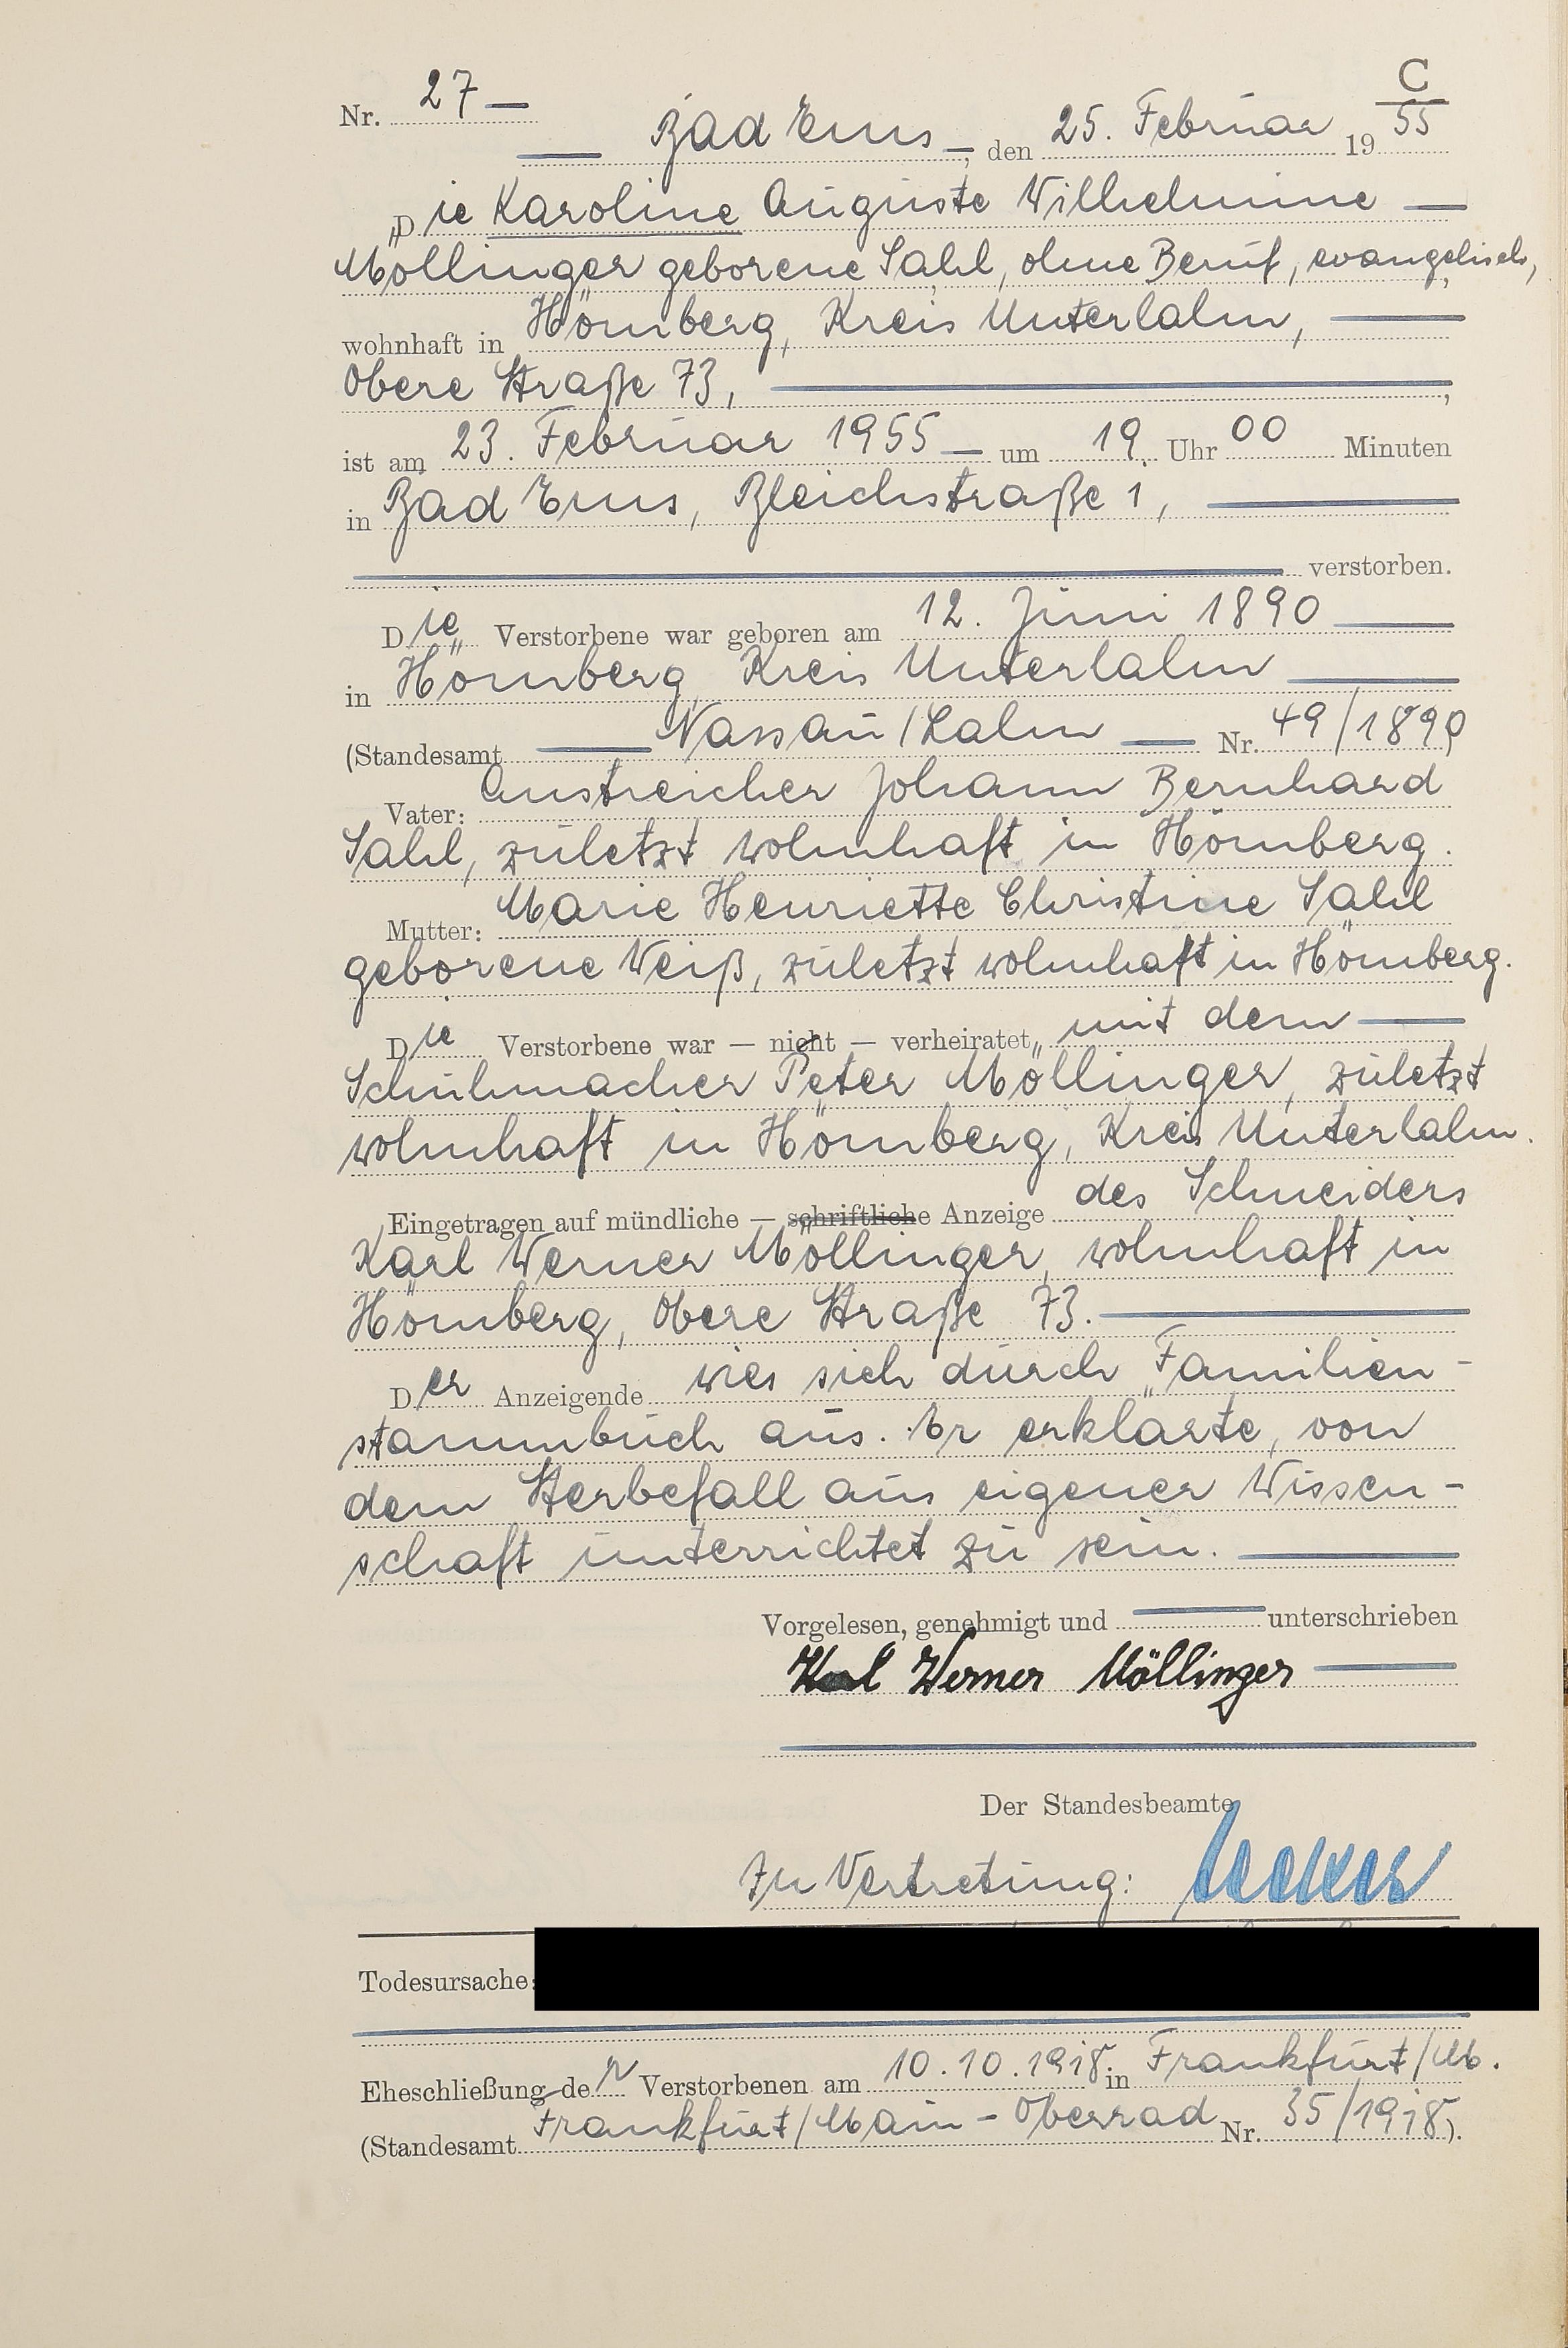 C
Nr. 27
Bad Ems, den 25. Februar 1955
Die Karoline Auguste Wilhelmine
Möllinger geborene Sahl, ohne Beruf, evangelisch,
wohnhaft in Hömberg, Kreis Unterlahn,
Obere Straße 73,
ist am 23. Februar 1955 um 19 Uhr 00 Minuten
in Bad Ems, Bleichstraße 1,
verstorben.
Die Verstorbene war geboren am 12. Juni 1890
in Hömberg, Kreis Unterlahn
(Standesamt Nassau/Lahn Nr. 49/1890)
Vater: Anstreicher Johann Bernhard
Sahl, zuletzt wohnhaft in Hömberg.
Mutter: Marie Henriette Christine Sahl
geborene Weiß, zuletzt wohnhaft in Hömberg.
Die Verstorbene war — nicht — verheiratet mit dem
Schuhmacher Peter Möllinger, zuletzt
wohnhaft in Hömberg, Kreis Unterlahn.
Eingetragen auf mündliche — schriftliche Anzeige des Schneiders
Karl Werner Möllinger, wohnhaft in
Hömberg, Obere Straße 73.
Der Anzeigende wies sich durch Familien-
stammbuch aus. Er erklärte, von
dem Sterbefall aus eigener Wissen-
schaft unterrichtet zu sein.
Vorgelesen, genehmigt und unterschrieben
Karl Werner Möllinger
Der Standesbeamte
In Vertretung:
Todesursache:
Eheschließung der Verstorbenen am 10.10.1918 in Frankfurt/M.
(Standesamt Frankfurt/Main-Oberrad Nr. 35/1918).